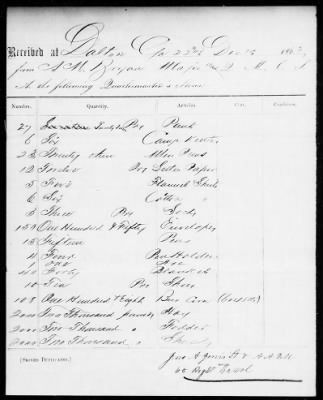 Received at Dalton Ga 22nd Dec 186
from A M Bryan Major & Q M C S
A. the following Quartermaster's Stores
No. Quantity. Articles. Cost. Condition.
27 Twenty Pants
6 Six Camp Kettles
Twenty
12 Twelve Letter Paper
5 Five Flannel Shirts
6 Six Cotton "
3 Three Prs Socks
150 One Hundred & Fifty Envelopes
15 Fifteen Pens
4 Four Pen Holders
1 One Axe
40 Forty Blankets
10 Ten Prs Shoes
108 One Hundred & Eight Corn
2000 Two Thousand pounds Hay
2000 Two Thousand " Fodder
2000 Two Thousand "
(SIGNED DUPLICATES.)
Jno A Lt & A A Q M
60 Regt